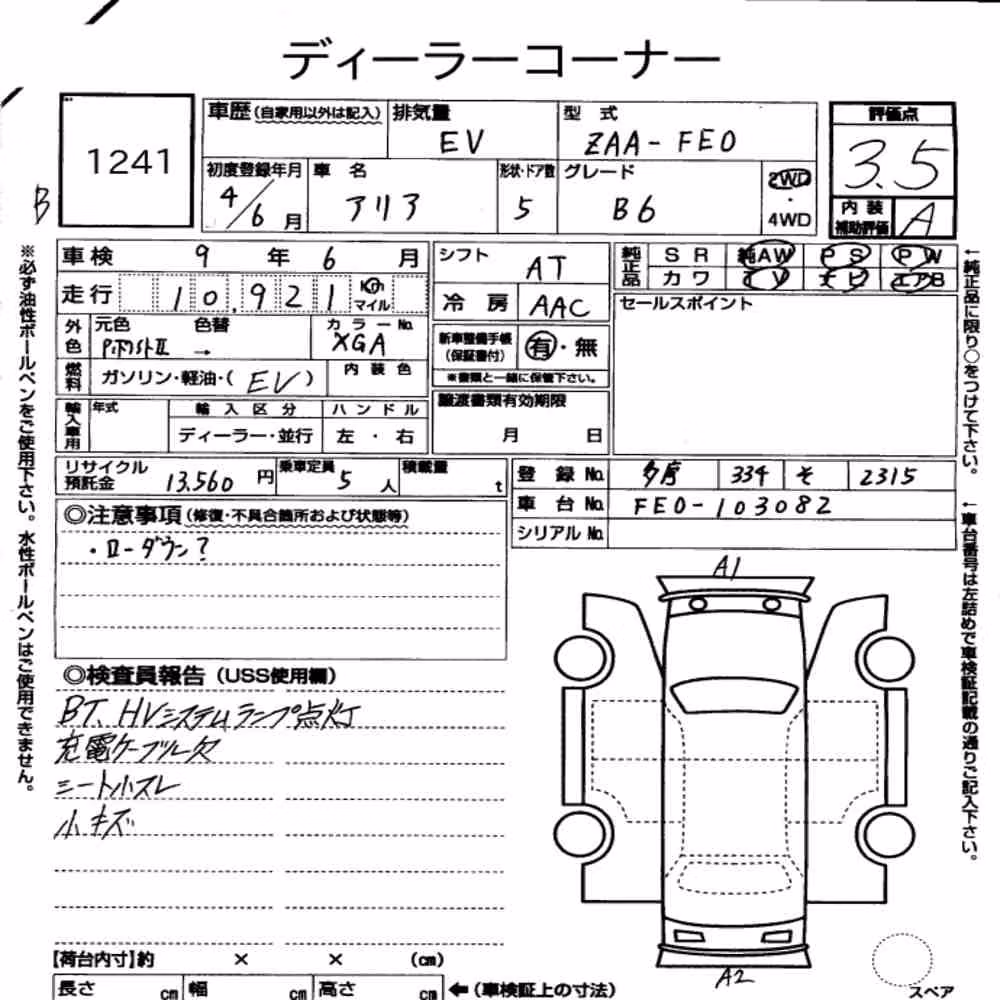 ディーラーコーナー
1241
B
車歴(自家用以外は記入)
排気量
EV
型 式
ZAA-FE0
評価点
3.5
初度登録年月
4/6月
車 名
アリア
形状・ドア数
5
グレード
B6
2WD
・
4WD
内 装
補助評価
A
車検 9 年 6 月
走行 10,921 Km
マイル
シフト
AT
冷 房
AAC
純正品
SR 純AW PS PW
カワ TV ナビ エアB
セールスポイント
外色
元色 色替
→
カラーNo.
XGA
新車整備手帳
(保証書付)
有・無
※書類と一緒に保管下さい。
燃料
ガソリン・軽油・( EV )
内装色
輸入車用
年式
輸入区分
ディーラー・並行
ハンドル
左・右
譲渡書類有効期限
月 日
リサイクル
預託金
13,560 円
乗車定員
5 人
積載量
t
登録No. 多摩 334 そ 2315
車台No. FE0-103082
シリアルNo.
◎注意事項(修復・不具合箇所および状態等)
・ローダウン?
◎検査員報告(USS使用欄)
BT、HVシステムランプ点灯
充電ケーブル欠
シート小スレ
小キズ
A1
A2
【荷台内寸】約 × × (cm)
長さ cm 幅 cm 高さ cm ←(車検証上の寸法)
スペア
※必ず油性ボールペンをご使用下さい。水性ボールペンはご使用できません。
←純正品に限り○をつけて下さい。
←車台番号は左詰めで車検証記載の通りご記入下さい。